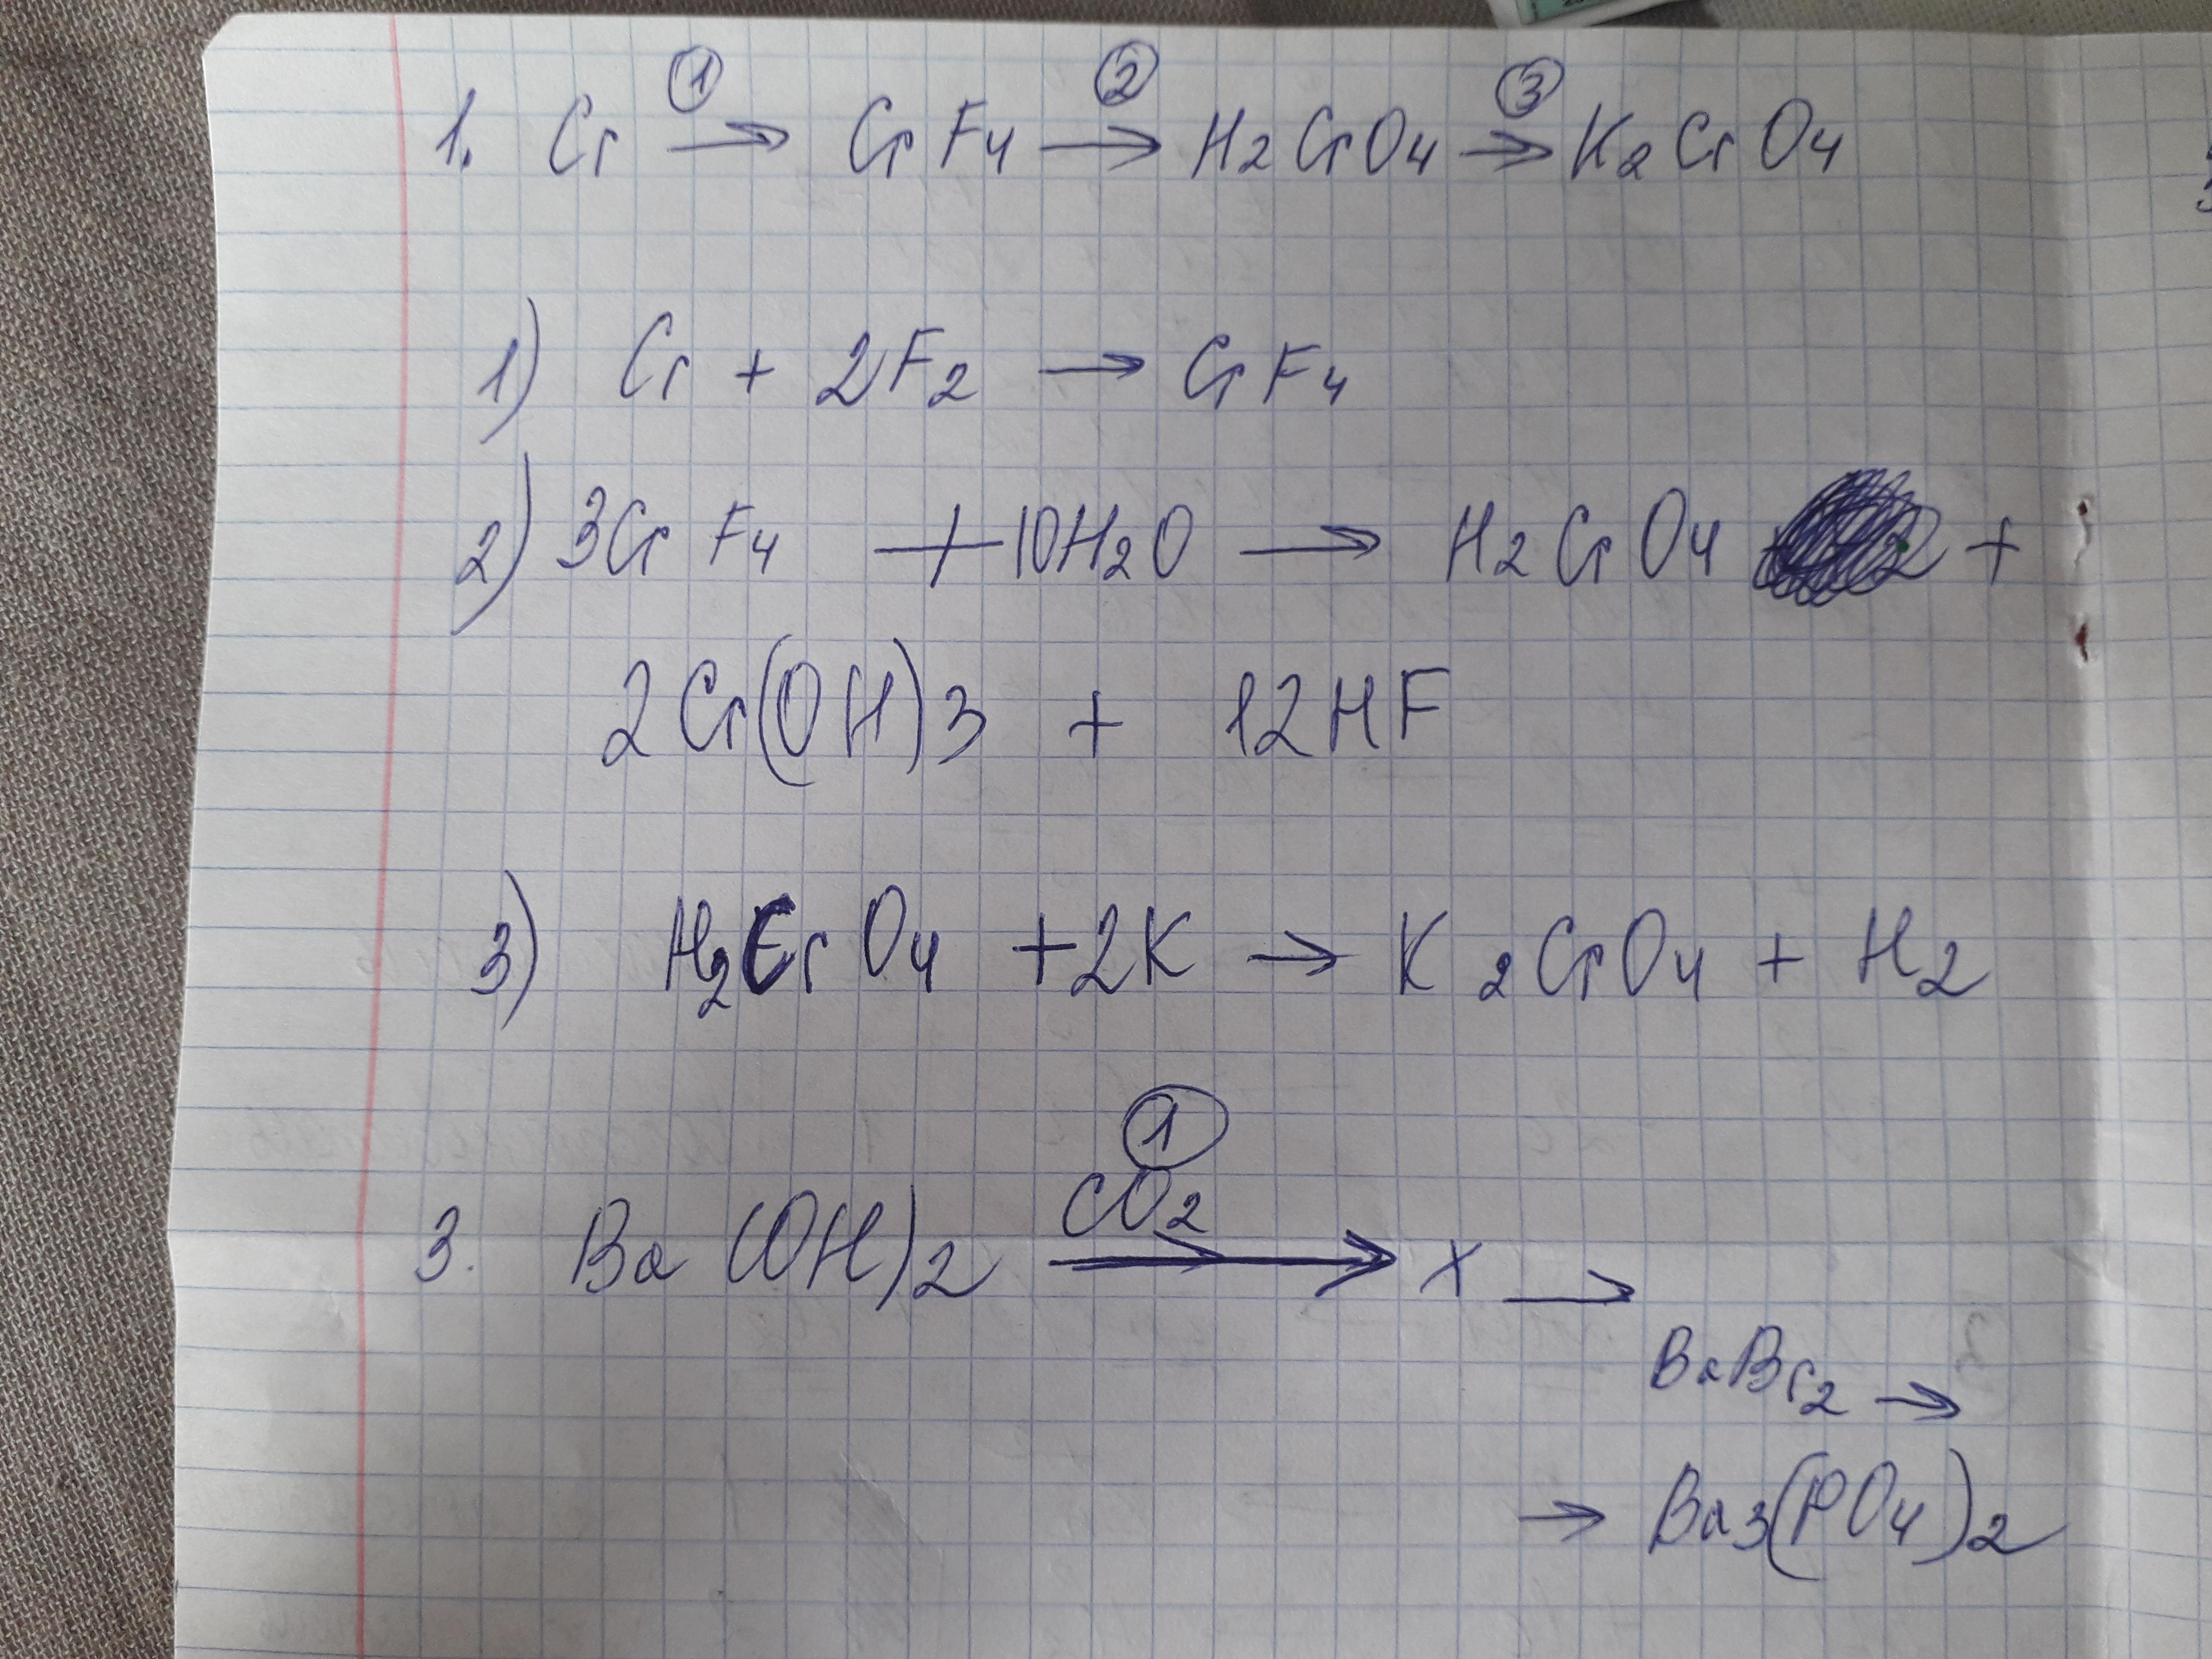 1. Cr ① → CrF4 ② → H2CrO4 ③ → K2CrO4
1) Cr + 2F2 → CrF4
2) 3CrF4 + 10H2O → H2CrO4 +
2Cr(OH)3 + 12HF
3) H2CrO4 + 2K → K2CrO4 + H2
①
3. Ba(OH)2 CO2 → X →
BaBr2 →
→ Ba3(PO4)2